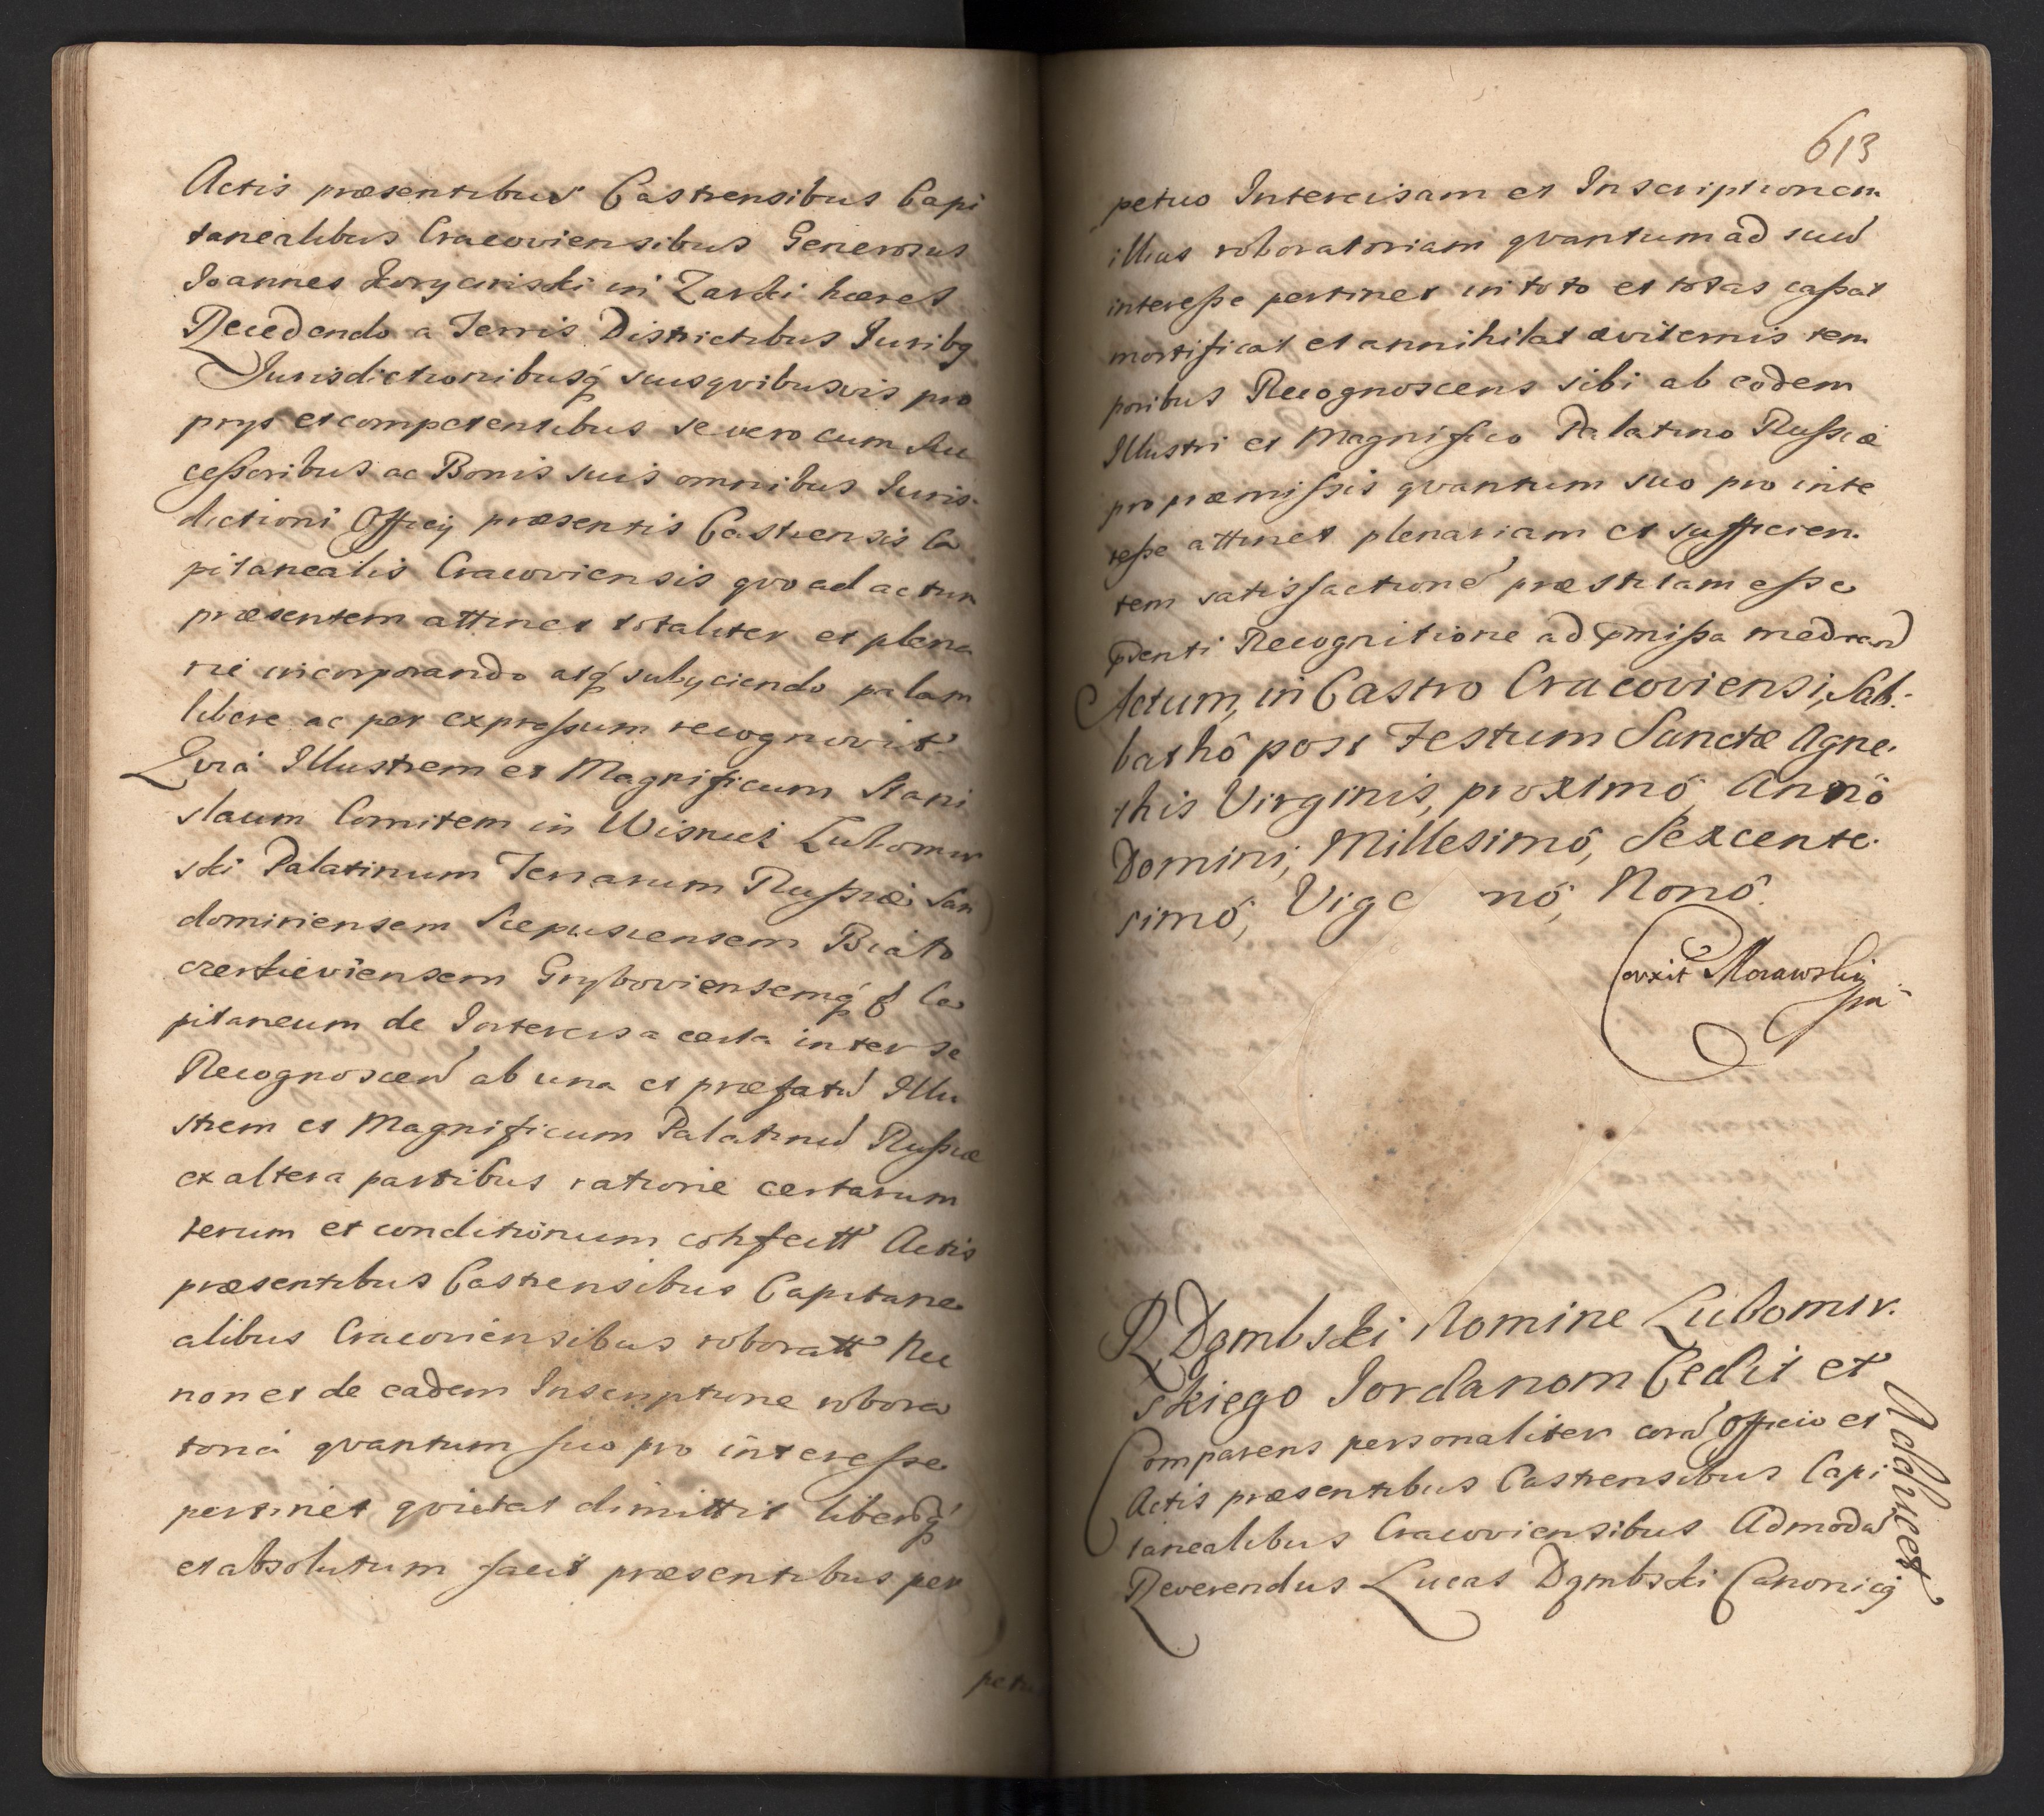 Actis præsentibus Castrensibus Capi
tanealibus Cracoviensibus Generosus
Joannes Koryciński in Żarki hæres
Recedendo a Terris Districtibus Juribq
Jurisdictionibusq suis quibusvis pro
prys et competentibus se vero cum suc
cessoribus ac Bonis suis omnibus Juris-
dictioni Officij præsentis Castrensis Ca
pitanealis Cracoviensis quo ad actum
præsentem attinet totaliter et plena
rie incorporando atq subyciendo palam
libere ac per expressum recognovit
Quia Illustrem et Magnificum Stani
slaum Comitem in Wisnicz Lubomir
ski Palatinum Terrarum Russiæ San
domiriensem Scepusiensem Biało
cerkieviensem Gryboviensemq Ca
pitaneum de Intercisa certa inter se
Recognoscen ab una et præfatu Illu
strem et Magnificum Palatinu Russiæ
ex altera partibus ratione certarum
rerum et conditionum confectt Actis
præsentibus Castrensibus Capitane
alibus Cracoviensibus roboratt Nec
non et de eadem Inscriptione robora
toria quantum suo pro interesse
pertinet quietat dimittit liberuq
et absolutum facit præsentibus per
petu
613
petuo Intercisam et Inscriptionem
illius roboratoriam quantum ad suu
interesse pertinet in toto et totas cassat
mortificat et annihilat æviternis tem
poribus Recognoscens sibi ab eodem
Illustri et Magnifico Palatino Russiæ
pro præmissis quantum suo pro inte
resse attinet plenariam et sufficien.
tem satisfactione præstitam esse
pnti Recognitione ad pmissa median
Actum, in Castro Cracoviensi, Sab.
bathô post Festum Sanctæ Agne.
this Virginis, proximô, Annô
Domini, Millesimô, Sexcente.
simô, Vige nô, Nonô.
Coxxit Morawski
mp
R Dąmbski Nomine Lubomir.
skiego Jordanom Cedit et
Adhucet
Comparens personaliter cora Officio et
Actis præsentibus Castrensibus Capi
tanealibus Cracoviensibus Admodu
Reverendus Lucas Dąmbski Canonicq